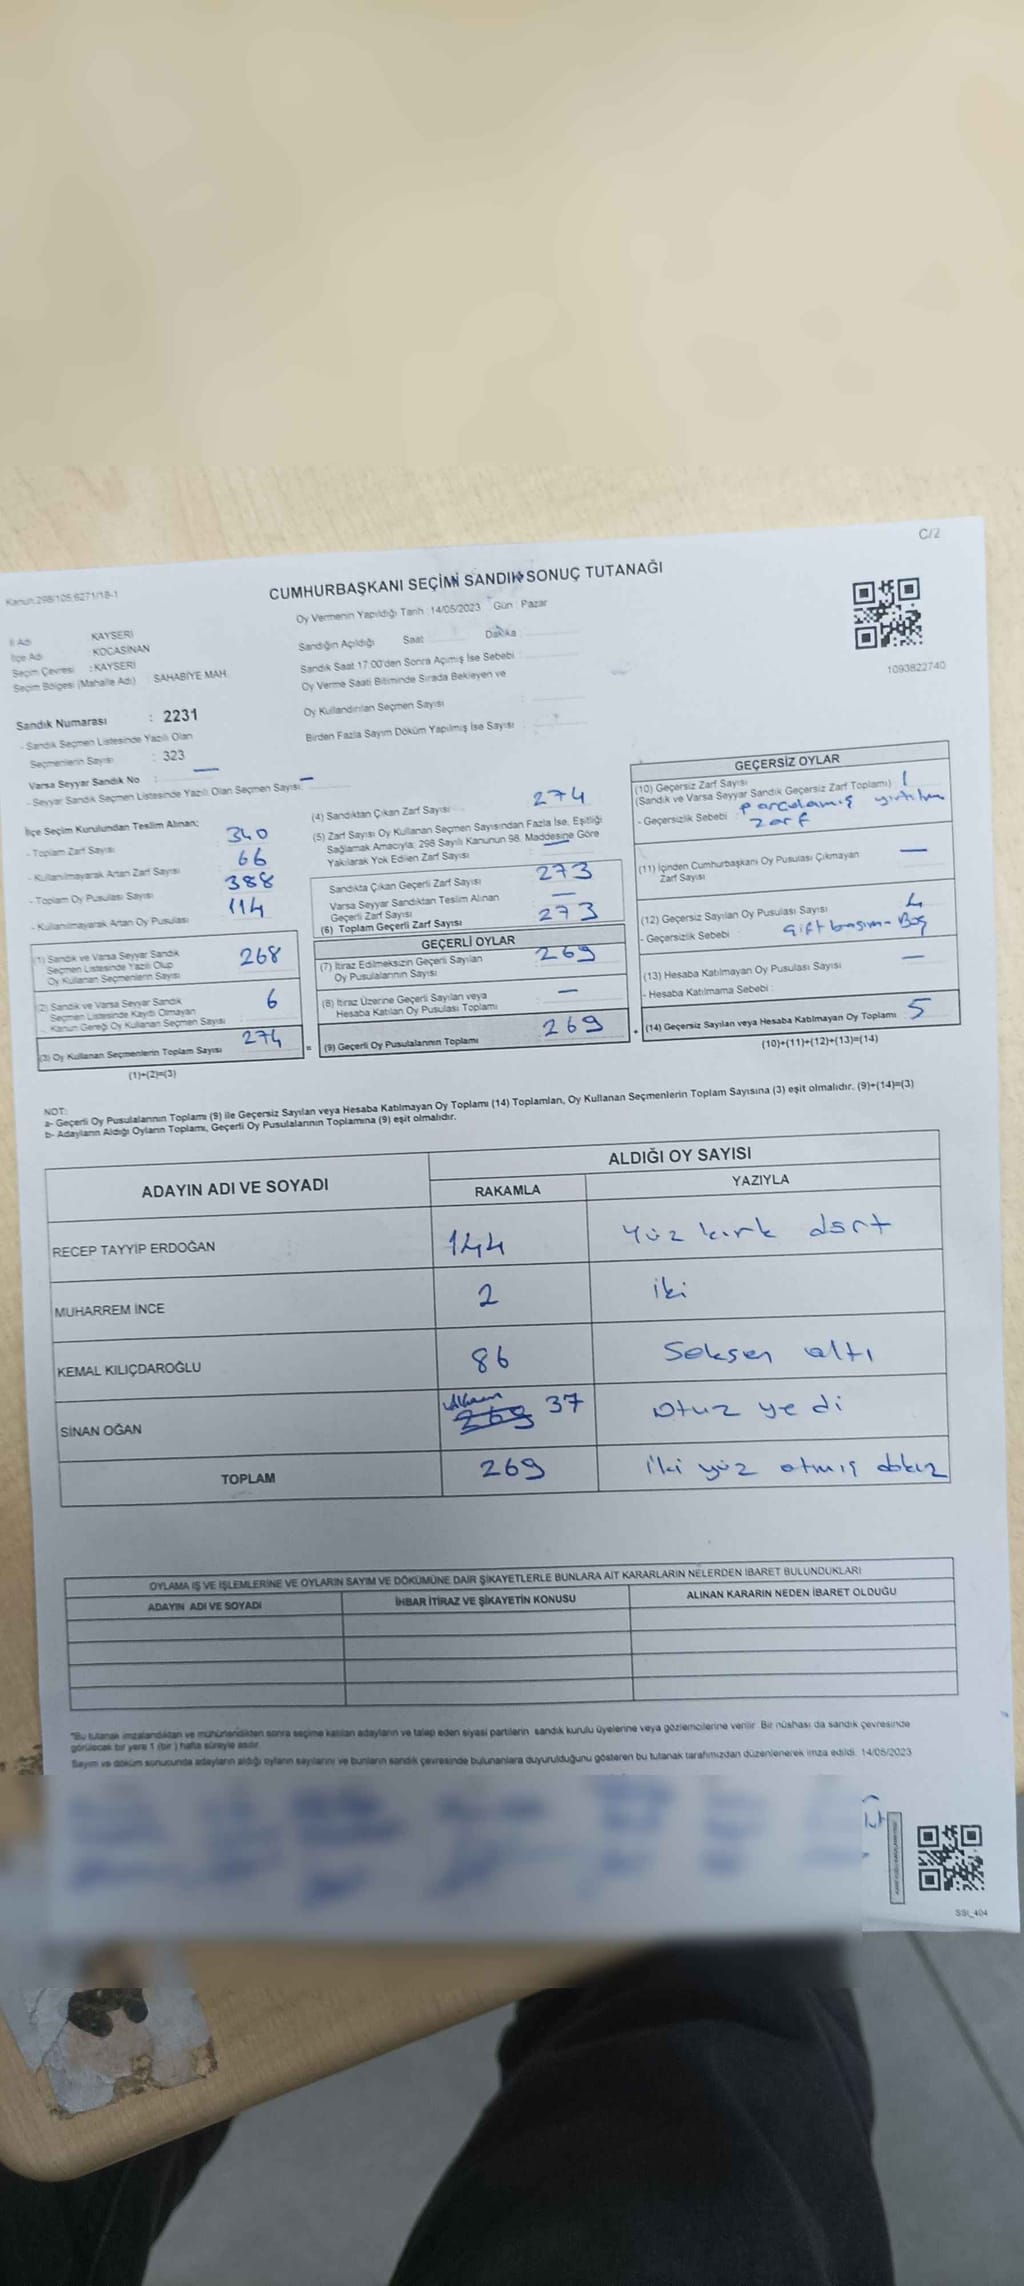 C/2
Kanun:298/105,6271/18-1
CUMHURBAŞKANI SEÇİMİ SANDIK SONUÇ TUTANAĞI
Oy Vermenin Yapıldığı Tarih : 14/05/2023 Gün : Pazar
İl Adı KAYSERİ
İlçe Adı : KOCASİNAN
Seçim Çevresi : KAYSERİ
Seçim Bölgesi (Mahalle Adı) SAHABİYE MAH.
Sandık Numarası : 2231
- Sandık Seçmen Listesinde Yazılı Olan
Seçmenlerin Sayısı : 323
Varsa Seyyar Sandık No : —
- Seyyar Sandık Seçmen Listesinde Yazılı Olan Seçmen Sayısı: —
Sandığın Açıldığı Saat Dakika :
Sandık Saat 17.00'den Sonra Açılmış İse Sebebi :
Oy Verme Saati Bitiminde Sırada Bekleyen ve
Oy Kullandırılan Seçmen Sayısı :
Birden Fazla Sayım Döküm Yapılmış İse Sayısı :
1093822740
İlçe Seçim Kurulundan Teslim Alınan;
- Toplam Zarf Sayısı 340
- Kullanılmayarak Artan Zarf Sayısı 66
- Toplam Oy Pusulası Sayısı 388
- Kullanılmayarak Artan Oy Pusulası 114
(1) Sandık ve Varsa Seyyar Sandık
Seçmen Listesinde Yazılı Olup
Oy Kullanan Seçmenlerin Sayısı 268
(2) Sandık ve Varsa Seyyar Sandık
Seçmen Listesinde Kayıtlı Olmayan
Kanun Gereği Oy Kullanan Seçmen Sayısı 6
(3) Oy Kullanan Seçmenlerin Toplam Sayısı 274
(1)+(2)=(3)
(4) Sandıktan Çıkan Zarf Sayısı 274
(5) Zarf Sayısı Oy Kullanan Seçmen Sayısından Fazla İse, Eşitliği
Sağlamak Amacıyla; 298 Sayılı Kanunun 98. Maddesine Göre
Yakılarak Yok Edilen Zarf Sayısı —
Sandıkta Çıkan Geçerli Zarf Sayısı 273
Varsa Seyyar Sandıktan Teslim Alınan
Geçerli Zarf Sayısı —
(6) Toplam Geçerli Zarf Sayısı 273
GEÇERLİ OYLAR
(7) İtiraz Edilmeksizin Geçerli Sayılan
Oy Pusulalarının Sayısı 269
(8) İtiraz Üzerine Geçerli Sayılan veya
Hesaba Katılan Oy Pusulası Toplamı —
= (9) Geçerli Oy Pusulalarının Toplamı 269
GEÇERSİZ OYLAR
(10) Geçersiz Zarf Sayısı
(Sandık ve Varsa Seyyar Sandık Geçersiz Zarf Toplamı) 1
- Geçersizlik Sebebi : parçalamış yırtılm
zarf
(11) İçinden Cumhurbaşkanı Oy Pusulası Çıkmayan
Zarf Sayısı —
(12) Geçersiz Sayılan Oy Pusulası Sayısı 4
- Geçersizlik Sebebi Çift basım - Boş
(13) Hesaba Katılmayan Oy Pusulası Sayısı —
- Hesaba Katılmama Sebebi :
+ (14) Geçersiz Sayılan veya Hesaba Katılmayan Oy Toplamı 5
(10)+(11)+(12)+(13)=(14)
NOT:
a- Geçerli Oy Pusulalarının Toplamı (9) ile Geçersiz Sayılan veya Hesaba Katılmayan Oy Toplamı (14) Toplamları, Oy Kullanan Seçmenlerin Toplam Sayısına (3) eşit olmalıdır. (9)+(14)=(3)
b- Adayların Aldığı Oyların Toplamı, Geçerli Oy Pusulalarının Toplamına (9) eşit olmalıdır.
ADAYIN ADI VE SOYADI ALDIĞI OY SAYISI
RAKAMLA YAZIYLA
RECEP TAYYİP ERDOĞAN 144 Yüz kırk dört
MUHARREM İNCE 2 iki
KEMAL KILIÇDAROĞLU 86 Seksen altı
SİNAN OĞAN 269 37 Otuz yedi
TOPLAM 269 iki yüz atmış dokuz
OYLAMA İŞ VE İŞLEMLERİNE VE OYLARIN SAYIM VE DÖKÜMÜNE DAİR ŞİKAYETLERLE BUNLARA AİT KARARLARIN NELERDEN İBARET BULUNDUKLARI
ADAYIN ADI VE SOYADI İHBAR İTİRAZ VE ŞİKAYETİN KONUSU ALINAN KARARIN NEDEN İBARET OLDUĞU
"Bu tutanak imzalandıktan ve mühürlendikten sonra seçime katılan adayların ve talep eden siyasi partilerin sandık kurulu üyelerine veya gözlemcilerine verilir. Bir nüshası da sandık çevresinde
görülecek bir yere 1 (bir ) hafta süreyle asılır.
Sayım ve döküm sonucunda adayların aldığı oyların sayılarını ve bunların sandık çevresinde bulunanlara duyurulduğunu gösteren bu tutanak tarafımızdan düzenlenerek imza edildi. 14/05/2023
SSI_404